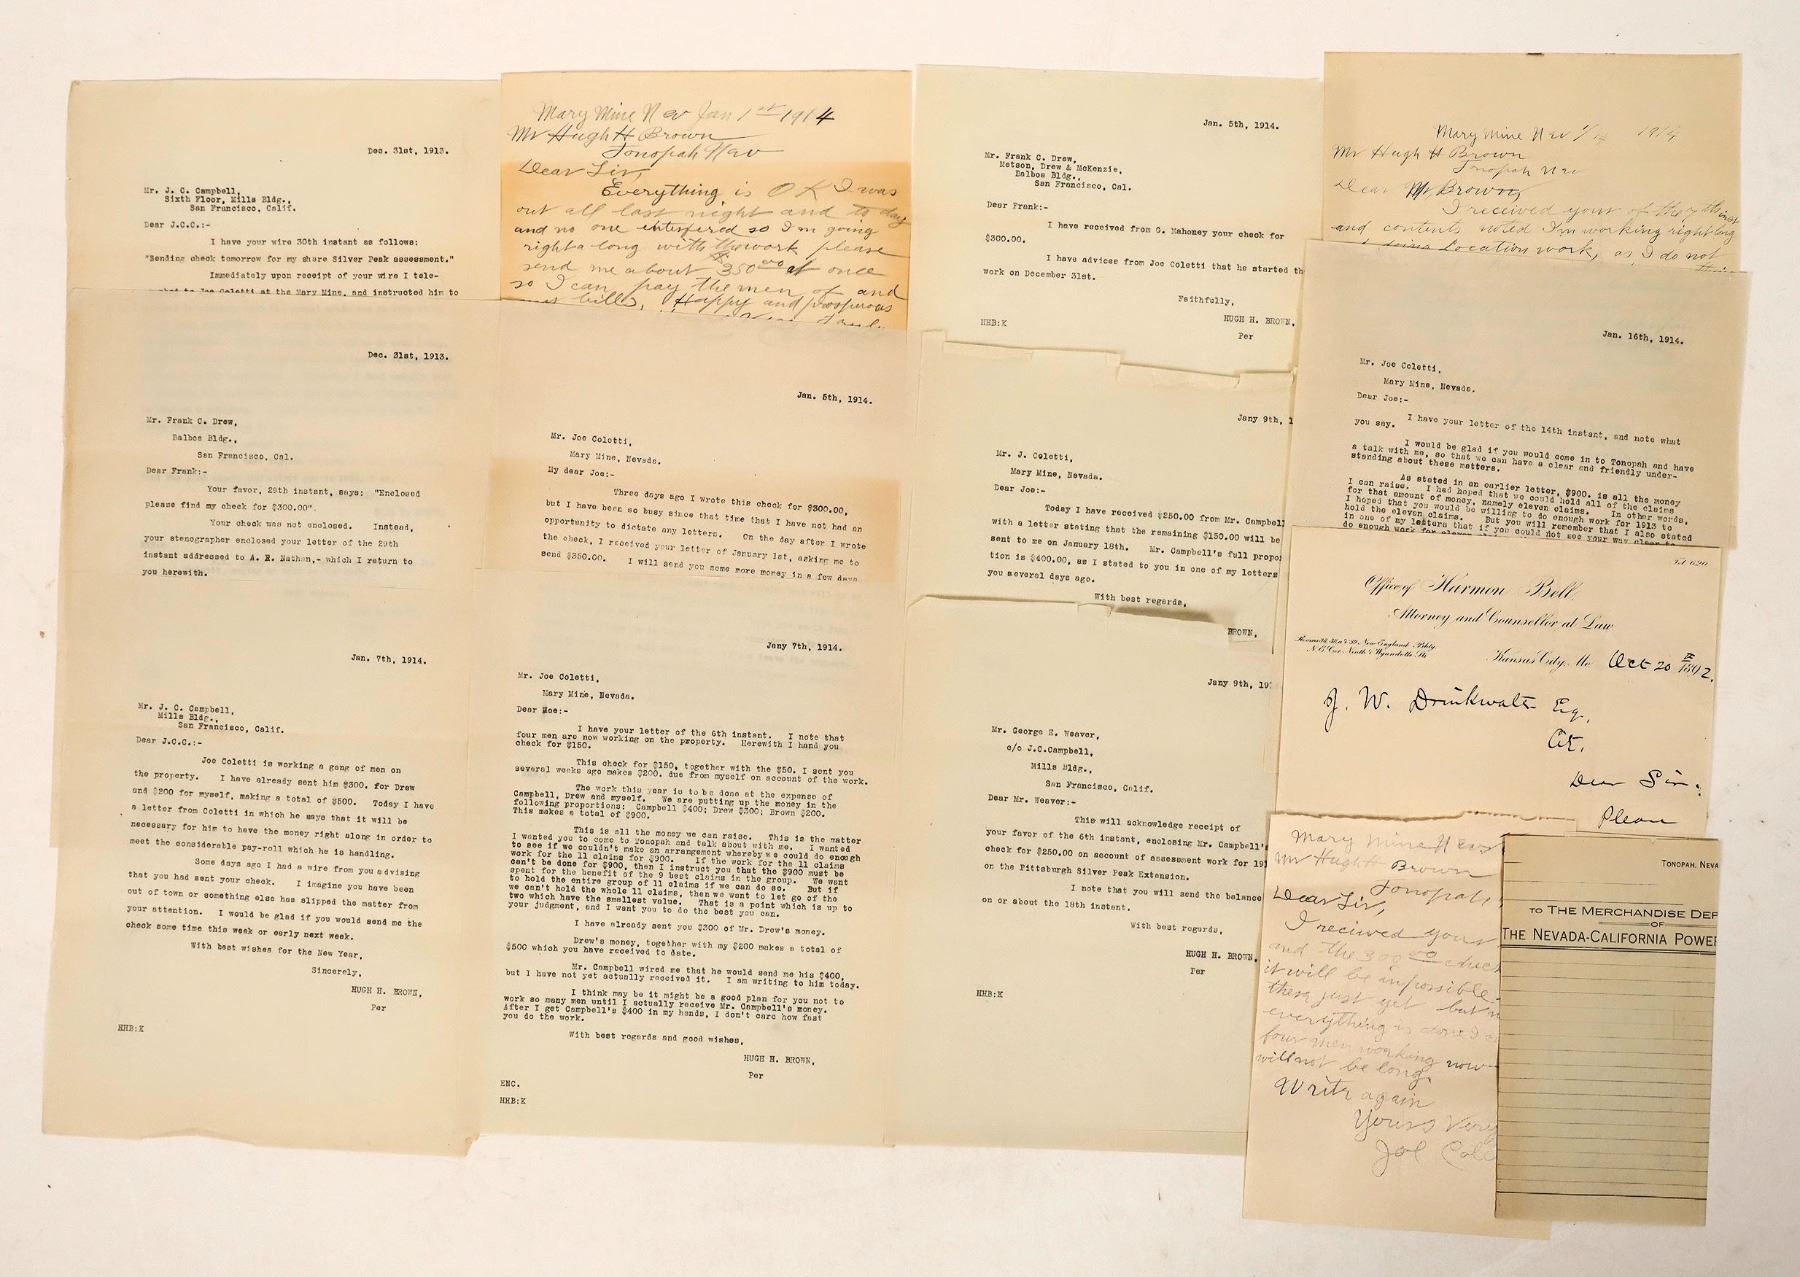 Dec. 31st, 1913.
Mr. J. C. Campbell,
Sixth Floor, Mills Bldg.,
San Francisco, Calif.
Dear J.C.C.:-
I have your wire 30th instant as follows:
"Sending check tomorrow for my share Silver Peak assessment."
Immediately upon receipt of your wire I tele-
to Joe Coletti at the Mary Mine, and instructed him to
Dec. 31st, 1913.
Mr. Frank C. Drew,
Balboa Bldg.,
San Francisco, Cal.
Dear Frank:-
Your favor, 29th instant, says: "Enclosed
please find my check for $300.00".
Your check was not enclosed. Instead,
your stenographer enclosed your letter of the 29th
instant addressed to A. R. Nathan,- which I return to
you herewith.
Jan. 7th, 1914.
Mr. J. C. Campbell,
Mills Bldg.,
San Francisco, Calif.
Dear J.C.C.:-
Joe Coletti is working a gang of men on
the property. I have already sent him $300. for Drew
and $200 for myself, making a total of $500. Today I have
a letter from Coletti in which he says that it will be
necessary for him to have the money right along in order to
meet the considerable pay-roll which he is handling.
Some days ago I had a wire from you advising
that you had sent your check. I imagine you have been
out of town or something else has slipped the matter from
your attention. I would be glad if you would send me the
check some time this week or early next week.
With best wishes for the New Year,
Sincerely,
HUGH H. BROWN,
Per
HHB:K
Mary Mine Nev Jan 1st 1914
Mr Hugh H Brown
Tonopah Nev
Dear Sir,
Everything is OK I was
out all last night and to day
and no one interfered so I'm going
right a long with the work, please
send me about $350.00 at once
so I can pay the men of and
bills, Happy and prosperous
Jan. 5th, 1914.
Mr. Joe Coletti,
Mary Mine, Nevada.
My dear Joe:-
Three days ago I wrote this check for $300.00,
but I have been so busy since that time that I have not had an
opportunity to dictate any letters. On the day after I wrote
the check, I received your letter of January 1st, asking me to
send $350.00. I will send you some more money in a few days
Jany 7th, 1914.
Mr. Joe Coletti,
Mary Mine, Nevada.
Dear Moe:-
I have your letter of the 6th instant. I note that
four men are now working on the property. Herewith I hand you
check for $150.
This check for $150, together with the $50. I sent you
several weeks ago makes $200. due from myself on account of the work.
The work this year is to be done at the expense of
Campbell, Drew and myself. We are putting up the money in the
following proportions: Campbell $400; Drew $300; Brown $200.
This makes a total of $900.
This is all the money we can raise. This is the matter
I wanted you to come to Tonopah and talk about with me. I wanted
to see if we couldn't make an arrangement whereby we could do enough
work for the 11 claims for $900. If the work for the 11 claims
can't be done for $900, then I instruct you that the $900 must be
spent for the benefit of the 9 best claims in the group. We want
to hold the entire group of 11 claims if we can do so. But if
we can't hold the whole 11 claims, then we want to let go of the
two which have the smallest value. That is a point which is up to
your judgment, and I want you to do the best you can.
I have already sent you $300 of Mr. Drew's money.
Drew's money, together with my $200 makes a total of
$500 which you have received to date.
Mr. Campbell wired me that he would send me his $400,
but I have not yet actually received it. I am writing to him today.
I think may be it might be a good plan for you not to
work so many men until I actually receive Mr. Campbell's money.
After I get Campbell's $400 in my hands, I don't care how fast
you do the work.
With best regards and good wishes,
HUGH H. BROWN,
Per
ENC.
HHB:K
Jan. 5th, 1914.
Mr. Frank C. Drew,
Metson, Drew & McKenzie,
Balboa Bldg.,
San Francisco, Cal.
Dear Frank:-
I have received from G. Mahoney your check for
$300.00.
I have advices from Joe Coletti that he started th
work on December 31st.
Faithfully,
HUGH H. BROWN,
HHB:K
Per
Jany 9th, 1
Mr. J. Coletti,
Mary Mine, Nevada.
Dear Joe:-
Today I have received $250.00 from Mr. Campbell
with a letter stating that the remaining $150.00 will be
sent to me on January 18th. Mr. Campbell's full propo
tion is $400.00, as I stated to you in one of my letters
you several days ago.
With best regards,
BROWN,
Jany 9th, 19
Mr. George Z. Weaver,
c/o J.C.Campbell,
Mills Bldg.,
San Francisco, Calif.
Dear Mr. Weaver:-
This will acknowledge receipt of
your favor of the 6th instant, enclosing Mr. Campbell's
check for $250.00 on account of assessment work for 191
on the Pittsburgh Silver Peak Extension.
I note that you will send the balance
on or about the 18th instant.
With best regards,
HUGH H. BROWN,
Per
HHB:K
Mary Mine Nev 1/14 1914
Mr Hugh H Brown
Tonopah Nev
Dear Mr Brown,
I received your of the 7th inst
and contents noted I'm working right long
doing Location work, as I do not
Jan. 16th, 1914.
Mr. Joe Coletti,
Mary Mine, Nevada.
Dear Joe:-
I have your letter of the 14th instant, and note what
you say.
I would be glad if you would come in to Tonopah and have
a talk with me, so that we can have a clear and friendly under-
standing about these matters.
As stated in an earlier letter, $900. is all the money
I can raise. I had hoped that we could hold all of the claims
for that amount of money, namely eleven claims. In other words,
I hoped that you would be willing to do enough work for 1913 to
hold the eleven claims. But you will remember that I also stated
in one of my letters that if you could not see your way clear to
do enough work for eleven
Office of Harmon Bell
Attorney and Counsellor at Law
Rooms New England Bldg
N.E. Cor. Ninth & Wyandotte Sts
Kansas City, Mo Oct 20th 1892.
J. W. Drinkwater Esq.
City.
Dear Sir:
Please
Mary Mine Nev
Mr Hugh H Brown
Tonopah,
Dear Sir,
I received yours
and the 300.00 check
it will be impossible
these just yet but
everything is done I
four men working now
will not be long.
Write again
Yours Very
Joe Cole
TONOPAH, NEVA
TO THE MERCHANDISE DEP
OF
THE NEVADA-CALIFORNIA POWE